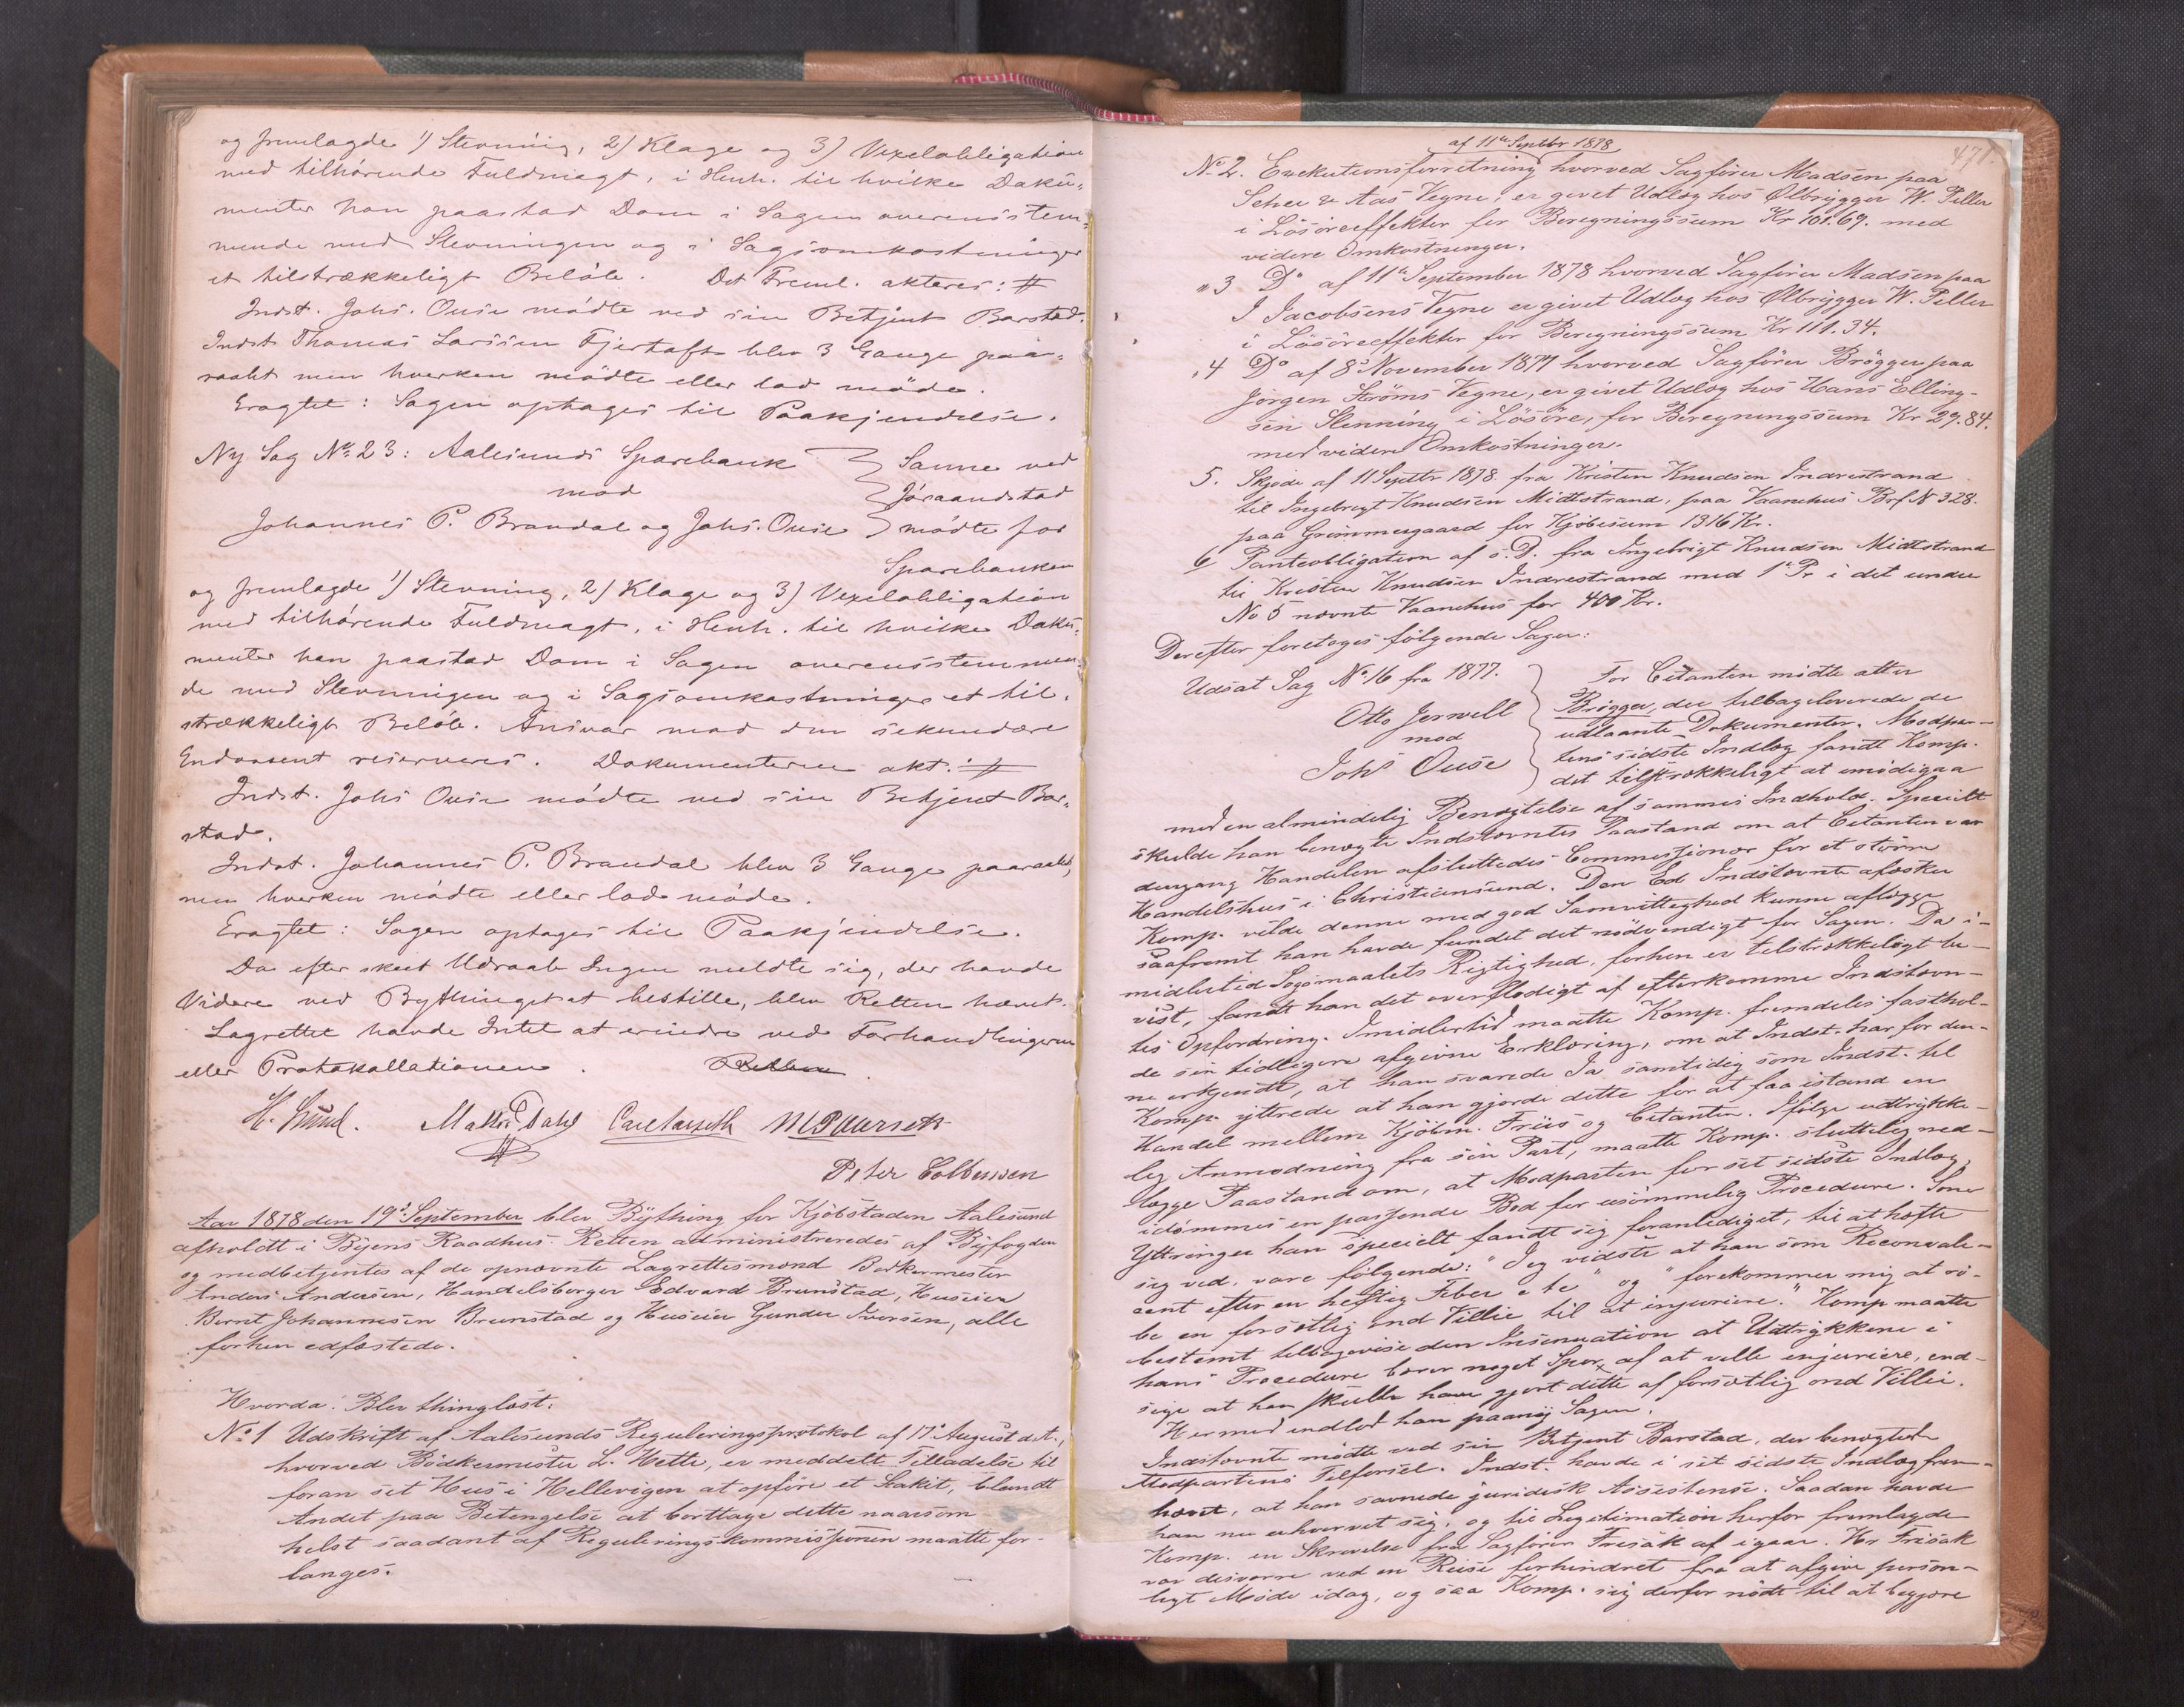 og fremlagde 1) Stevning, 2) Klage og 3) Vexelobligation
med tilhørende Fuldmagt, i Henh. til hvilke Doku-
menter han paastod Dom i Sagen overensstem-
mende med Stevningen og i Sagsomkostninger
et tilstrækkeligt Beløb. Det Freml. akteres: #
Indst. Johs. Ouse mødte ved sin Betjent Barstad.
Indst. Thomas Larssen Fjertoft blev 3 Gange paa-
raabt men hverken mødte eller lod møde.
Eragtet: Sagen optages til Paakjendelse.
Ny Sag No 23: Aalesunds Sparebank
mod
Johannes P. Brandal og Johs. Ouse
Sanne ved
Jøraandstad
mødte for
Sparebanken
og fremlagde 1) Stevning, 2) Klage og 3) Vexelobligation
med tilhørende Fuldmagt, i Henh. til hvilke Doku-
menter han paastod Dom i Sagen overensstemmen-
de med Stevningen og i Sagsomkostninger et til-
strækkeligt Beløb. Ansvar mod den sekundære
Endossent reserveres. Dokumenterne akt.: #
Indst. Johs Ouse mødte ved sin Betjent Bar-
stad.
Indst. Johannes P. Brandal blev 3 Gange paaraabt,
men hverken mødte eller lod møde.
Eragtet: Sagen optages til Paakjendelse.
Da efter skeet Udraab Ingen meldte sig, der havde
Videre ved Bythinget at bestille, blev Retten hævet.
Lagrettet havde Intet at erindre ved Forhandlingerne
eller Protokollationen. Retten
H. Lund. Mathis Dahl Carl Aarseth M P Aarseth
Peter Colbensen
Aar 1878 den 19de September blev Bything for Kjøbstaden Aalesund
afholdt i Byens Raadhus. Retten administreredes af Byfogden
og medbetjentes af de opnævnte Lagrettesmænd Bødkermester
Anders Andersen, Handelsborger Edvard Brunstad, Huseier
Bernt Johannesen Brunstad og Huseier Gunder Iversen, alle
forhen edfæstede.
Hvorda: Blev thinglæst:
No 1 Udskrift af Aalesunds Reguleringsprotokol af 17de August d. A.,
hvorved Bødkermester L. Hette, er meddelt Tilladelse til
foran sit Hus i Hellevigen at opføre et Stakit, blandt
Andet paa Betingelse at borttage dette naarsom
helst saadant af Reguleringskommissionen maatte for-
langes.
471.
af 11te Septbr 1878
No 2. Exekutionsforretning hvorved Sagfører Madsen paa
Schee & Aas Vegne, er givet Udlæg hos Ølbrygger W. Peller
i Løsøreeffekter for Beregningssum Kr 101.69. med
videre Omkostninger.
" 3 Do af 11te September 1878 hvorved Sagfører Madsen paa
J Jacobsens Vegne er givet Udlæg hos Ølbrygger W. Peller
i Løsøreeffekter for Beregningssum Kr 111.34.
" 4 Do af 8de November 1877 hvorved Sagfører Brøgger paa
Jørgen Strøms Vegne, er givet Udlæg hos Hans Elling-
sen Slenning i Løsøre, for Beregningssum Kr 29.84.
med videre Omkostninger.
5. Skjøde af 11 Septbr 1878 fra Kristen Knudsen Indrestrand
til Ingebrigt Knudsen Midtstrand, paa Vaanehus Brf No 328.
paa Grimmergaard for Kjøbesum 1316 Kr.
6 Panteobligation af s. D. fra Ingebrigt Knudsen Midtstrand
til Kristen Knudsen Indrestrand med 1ste Pr. i det under
No 5 nævnte Vaanehus for 400 Kr.
Derefter foretoges følgende Sager:
Udsat Sag No 16 fra 1877.
Otto Jervell
mod
Johs Ouse
For Citanten mødte atter
Brøgger, der tilbageleverede de
udlaante Dokumenter. Modpar-
tens sidste Indlæg fandt Komp.
det tilstrækkeligt at imødegaa
med en almindelig Benægtelse af sammes Indhold. Specielt
skulde han benægte Indstævntes Paastand om at Citanten var
dengang Handelen afsluttedes Commissionær for et større
Handelshus i Christiansund. Den Ed Indstævnte afæsker
Komp. vilde denne med god Samvittighed kunne aflægge
saafremt han havde fundet det nødvendigt for Sagen. Da i-
midlertid Søgsmaalets Rigtighed, forhen er tilstrækkeligt be-
vist, fandt han det overflødigt at efterkomme Indstævn-
tes Opfordring. Imidlertid maatte Komp. fremdeles fasthol-
de sin tidligere afgivne Erklæring, om at Indst. har for den-
ne erkjendt, at han svarede Ja samtidig som Indst. til
Komp. yttrede at han gjorde dette for at faa istand en
Handel mellem Kjøbm. Friis og Citanten. Ifølge udtrykke-
lig Anmodning fra sin Part, maatte Komp. sluttelig ned-
lægge Paastand om, at Modparten for sit sidste Indlæg,
idømmes en passende Bod for usømmelig Procedure. Som
Yttringer han specielt fandt sig foranlediget, til at hefte
sig ved, vare følgende: "Jeg vidste at han som Reconvale-
cent efter en heftig Feber etc" og "forekommer mig at rø-
be en forsætlig ond Villie til at injuriere." Komp maatte
bestemt tilbagevise den Insinuation at Udtrykkene i
hans Procedure bærer noget Spor af at ville injuriere, end-
sige at han skulle have gjort dette af forsætlig ond Villie.
Hermed indlod han paany Sagen.
Indstævnte mødte ved sin Betjent Barstad, der benægtede
Modpartens Tilførsel. Indst. havde i sit sidste Indlæg frem-
hævet, at han savnede juridisk Assistense. Saadan havde
han nu erhvervet sig, og til Legitimation herfor fremlagde
Komp. en Skrivelse fra Sagfører Frisak af igaar. Hr Frisak
var desværre ved en Reise forhindret fra at afgive person-
ligt Møde idag, og saa Komp. sig derfor nødt til at begjære